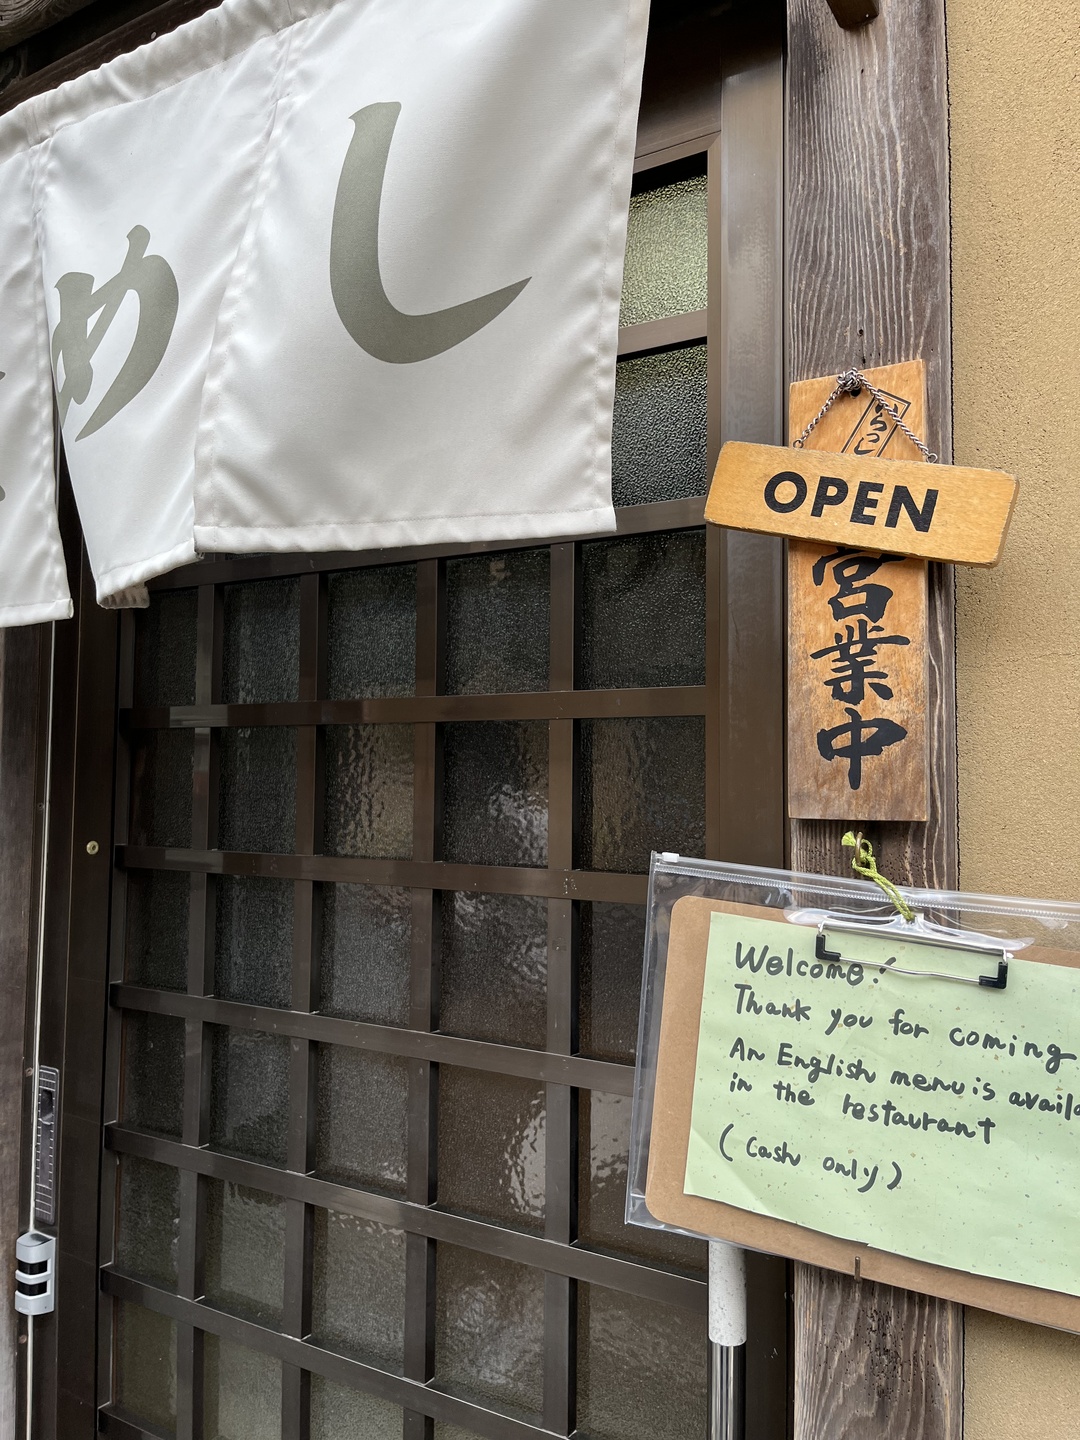 めし
いらっしゃ
OPEN
営業中
Welcome!
Thank you for coming
An English menu is
in the restaurant
(Cash only)